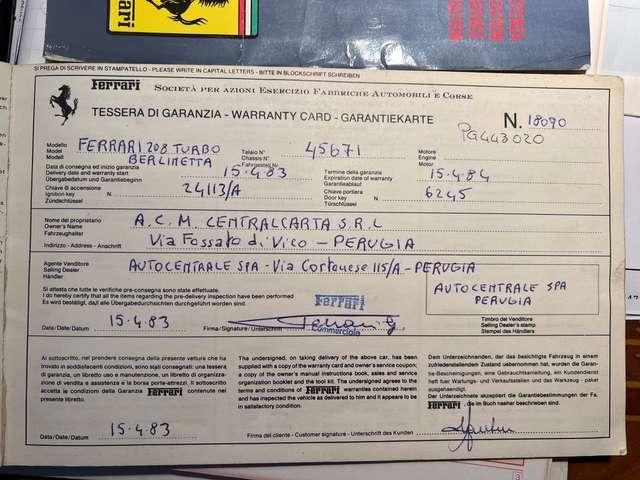 Ferrari
SI PREGA DI SCRIVERE IN STAMPATELLO - PLEASE WRITE IN CAPITAL LETTERS - BITTE IN BLOCKSCHRIFT SCHREIBEN
Ferrari SOCIETÀ PER AZIONI ESERCIZIO FABBRICHE AUTOMOBILI E CORSE
TESSERA DI GARANZIA - WARRANTY CARD - GARANTIEKARTE N. 18090
PG443020
Modello
Model
Modell
FERRARI 208 TURBO
BERLINETTA
Telaio N°
Chassis N°
Fahrgestell Nr.
45671
Motore
Engine
Motor
Data di consegna ed inizio garanzia
Delivery date and warranty start
Übergabedatum und Garantiebeginn
15.4.83
Termine della garanzia
Expiration date of warranty
Garantieablauf
15.4.84
Chiave di accensione
Ignition key
Zündschlüssel
N. 24113/A
Chiave portiera
Door key
Türschlüssel
N. 6245
Nome del proprietario
Owner's Name
Fahrzeughalter
A.C.M. CENTRALCARTA S.R.L
Indirizzo - Address - Anschrift
Via Fossato di Vico - PERUGIA
Agente Venditore
Selling Dealer
Händler
AUTOCENTRALE SPA - Via Cortonese 115/A - PERUGIA
Si attesta che tutte le verifiche pre-consegna sono state effettuate.
I do hereby certify that all the items regarding the pre-delivery inspection have been performed
Es wird bestätigt, daß alle Übergabedurchsichten durchgeführt worden sind.
Ferrari
Commerciale
Data/Date/Datum 15.4.83 Firma/Signature/Unterschrift
AUTOCENTRALE SPA
PERUGIA
Timbro del Venditore
Selling Dealer's stamp
Stempel des Händlers
Al sottoscritto, nel prendere consegna della presente vettura che ha
trovato in soddisfacenti condizioni, sono stati consegnati: una tessera
di garanzia, un libretto uso e manutenzione, un libretto di organiz-
zazione di vendita e assistenza e la borsa porte-attrezzi. Il sottoscritto
accetta le condizioni della Garanzia Ferrari contenute nel
presente libretto.
The undersigned, on taking delivery of the above car, has been
supplied with a copy of the warranty card and owner's service coupon;
a copy of the owner's manual instructions book, sales and service
organization booklet and the tool kit. The undersigned agrees to the
terms and conditions of Ferrari warranties contained herein
and has inspected the vehicle as delivered to him and it appears to be
in satisfactory condition.
Dem Unterzeichnenden, der das besichtigte Fahrzeug in einem
zufriedenstellenden Zustand übernommen hat, wurden die Garan-
tie-Bescheinigungen, eine Gebrauchsanleitung, ein Kundendienst
heft fuer Wartungs- und Verkaufsstellen und das Werkzeug - paket
ausgehaendigt.
Der Unterzeichnete akzeptiert die Garantiebestimmungen der Fa.
Ferrari, die im Buch nachher beschrieben sind.
Data/Date/Datum 15.4.83 Firma del cliente - Customer signature - Unterschrift des Kunden